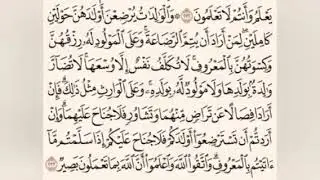 يَعْلَمُ وَأَنتُمْ لَا تَعْلَمُونَ ٢٣٢ ۞ وَٱلْوَٰلِدَٰتُ يُرْضِعْنَ أَوْلَٰدَهُنَّ حَوْلَيْنِ
كَامِلَيْنِ ۖ لِمَنْ أَرَادَ أَن يُتِمَّ ٱلرَّضَاعَةَ ۚ وَعَلَى ٱلْمَوْلُودِ لَهُۥ رِزْقُهُنَّ
وَكِسْوَتُهُنَّ بِٱلْمَعْرُوفِ ۚ لَا تُكَلَّفُ نَفْسٌ إِلَّا وُسْعَهَا ۚ لَا تُضَآرَّ
وَٰلِدَةٌۢ بِوَلَدِهَا وَلَا مَوْلُودٌ لَّهُۥ بِوَلَدِهِۦ ۚ وَعَلَى ٱلْوَارِثِ مِثْلُ ذَٰلِكَ ۗ فَإِنْ
أَرَادَا فِصَالًا عَن تَرَاضٍ مِّنْهُمَا وَتَشَاوُرٍ فَلَا جُنَاحَ عَلَيْهِمَا ۗ وَإِنْ
أَرَدتُّمْ أَن تَسْتَرْضِعُوٓا۟ أَوْلَٰدَكُمْ فَلَا جُنَاحَ عَلَيْكُمْ إِذَا سَلَّمْتُم مَّآ
ءَاتَيْتُم بِٱلْمَعْرُوفِ ۗ وَٱتَّقُوا۟ ٱللَّهَ وَٱعْلَمُوٓا۟ أَنَّ ٱللَّهَ بِمَا تَعْمَلُونَ بَصِيرٌ ٢٣٣